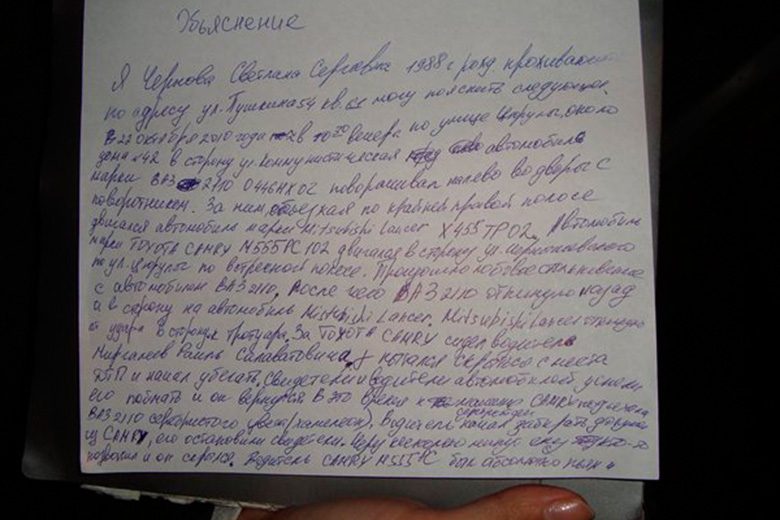 Объяснение
Я Чернова Светлана Сергеевна 1988 г. рожд. проживающая
по адресу ул. Пушкина 54 кв. 61 могу пояснить следующее.
В 22 октября 2010 года в 10 30 вечера по улице Цюрупы, около
дома №42 в сторону ул. Коммунистическая автомобиль
марки ВАЗ 2110 О446НХ02 поворачивал налево во дворы с
поворотником. За ним, объезжая по крайней правой полосе
двигался автомобиль марки Mitsubishi Lancer Х455ТР02. Автомобиль
марки TOYOTA CAMRY М555РС 102 двигался в сторону ул. Чернышевского
по ул. Цюрупы по встречной полосе. Произошло лобовое столкновение
с автомобилем ВАЗ 2110, После чего ВАЗ 2110 откинуло назад
и в сторону на автомобиль Mistubishi Lancer. Mitsubishi Lancer откинуло
от удара в сторону тротуара. За TOYOTA CAMRY сидел водитель
Салаватовича, пытался скрыться с места
ДТП и начал убегать. Свидетели и водители автомобилей успели
его поймать и он вернулся. В это время к CAMRY подъехала
ВАЗ 2110 серебристого цвета (хамелеон). Водитель начал забирать документы
из CAMRY, его остановили свидетели. Через несколько минут ему
позвонил и он скрылся. Водитель CAMRY М555РС был абсолютно пьян и